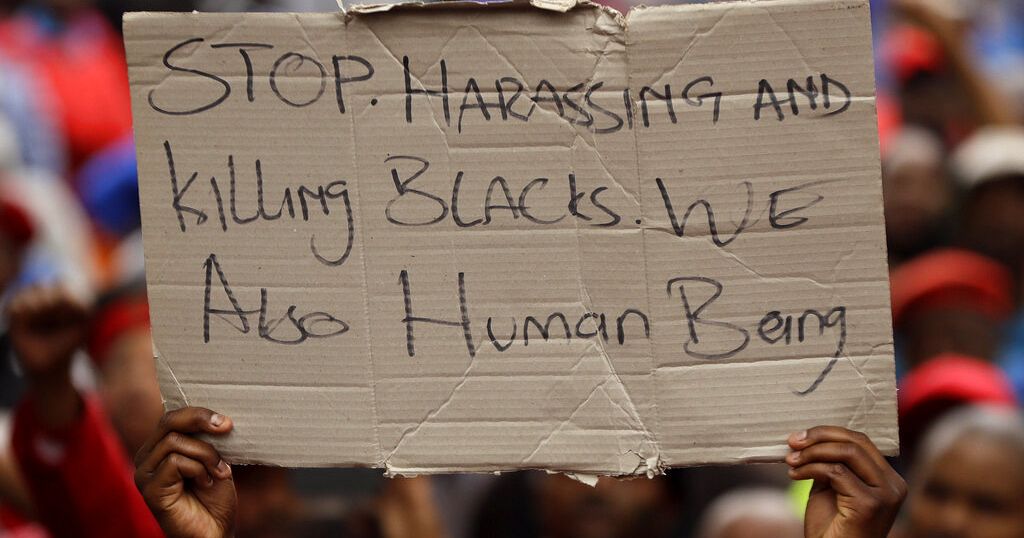 STOP. HARASSING AND
KIlliNg BLACks. WE
Also Human Being